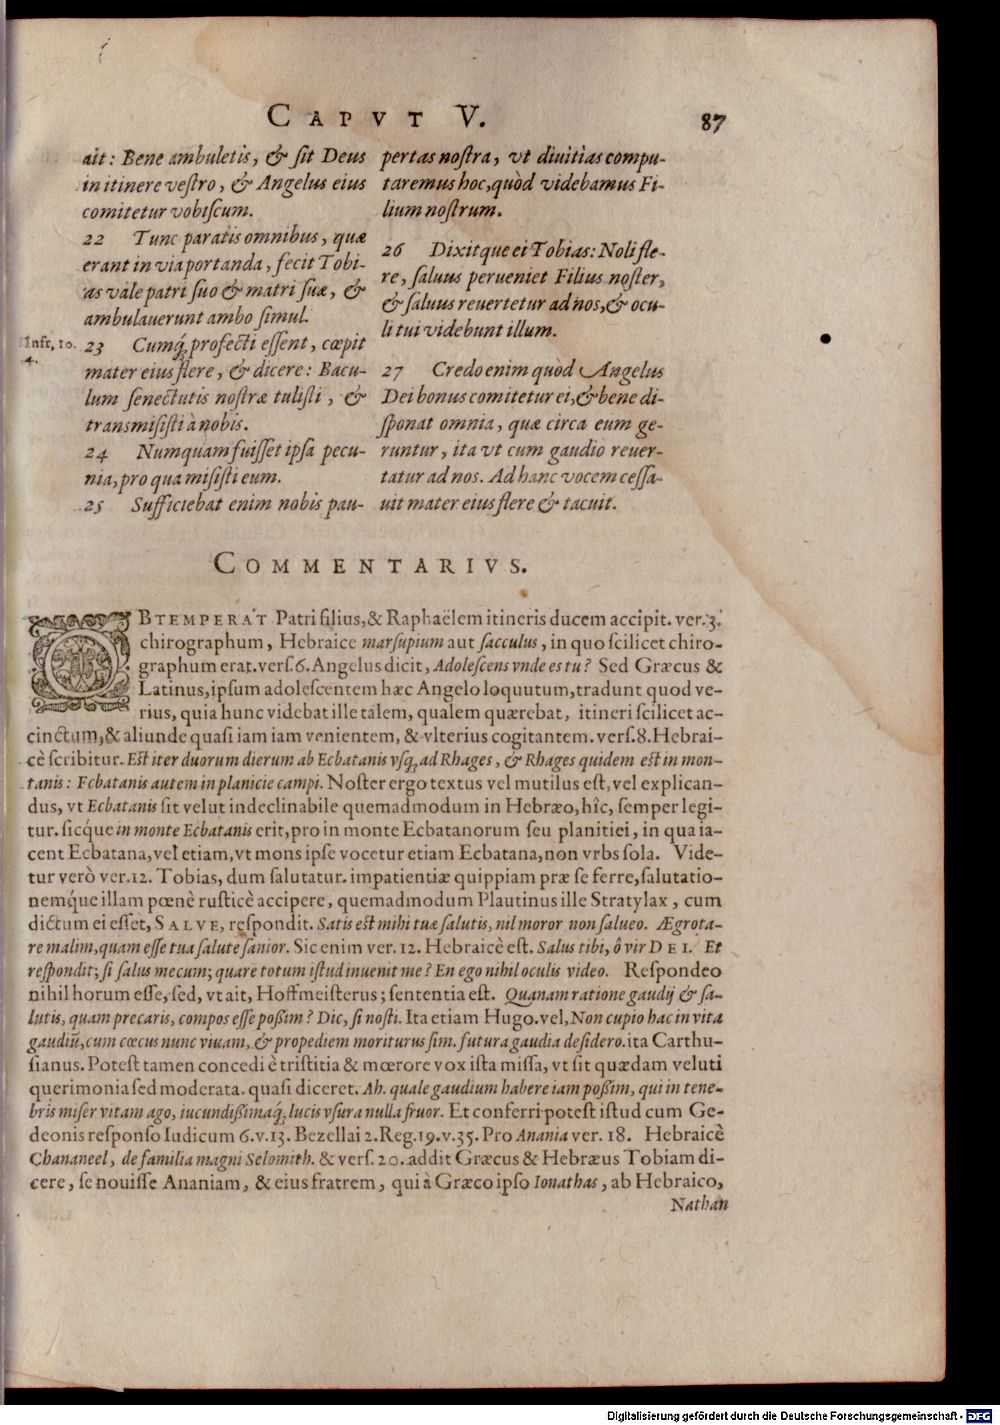 CAPVT V.
87
ait: Bene ambuletis, & ſit Deus
in itinere veſtro, & Angelus eius
comitetur vobiſcum.
22 Tunc paratis omnibus, quæ
erant in via portanda, fecit Tobi-
as vale patri ſuo & matri ſuæ, &
ambulauerunt ambo ſimul.
Infr, 10.
4.
23 Cumq́; profecti eſſent, cœpit
mater eius flere, & dicere: Bacu-
lum ſenectutis noſtræ tuliſti, &
transmiſiſti à nobis.
24 Numquam fuiſſet ipſa pecu-
nia, pro qua miſiſti eum.
25 Sufficiebat enim nobis pau-
pertas noſtra, vt diuitias compu-
taremus hoc, quòd videbamus Fi-
lium noſtrum.
26 Dixitque ei Tobias: Noli fle-
re, ſaluus perueniet Filius noſter,
& ſaluus reuertetur ad nos, & ocu-
li tui videbunt illum.
27 Credo enim quòd Angelus
Dei bonus comitetur ei, & bene di-
ſponat omnia, quæ circa eum ge-
runtur, ita vt cum gaudio reuer-
tatur ad nos. Ad hanc vocem ceſſa-
uit mater eius flere & tacuit.
COMMENTARIVS.
OBTEMPERAT Patri filius, & Raphaëlem itineris ducem accipit. ver. 3.
chirographum, Hebraice marſupium aut ſacculus, in quo ſcilicet chiro-
graphum erat. verſ. 6. Angelus dicit, Adoleſcens vnde es tu? Sed Græcus &
Latinus, ipſum adoleſcentem hæc Angelo loquutum, tradunt quod ve-
rius, quia hunc videbat ille talem, qualem quærebat, itineri ſcilicet ac-
cinctum, & aliunde quaſi iam iam venientem, & vlterius cogitantem. verſ. 8. Hebrai-
cè ſcribitur. Eſt iter duorum dierum ab Ecbatanis vſq; ad Rhages, & Rhages quidem eſt in mon-
tanis: Ecbatanis autem in planicie campi. Noſter ergo textus vel mutilus eſt, vel explican-
dus, vt Ecbatanis ſit velut indeclinabile quemadmodum in Hebræo, hîc, ſemper legi-
tur. ſicq́ue in monte Ecbatanis erit, pro in monte Ecbatanorum ſeu planitiei, in qua ia-
cent Ecbatana, vel etiam, vt mons ipſe vocetur etiam Ecbatana, non vrbs ſola. Vide-
tur verò ver. 12. Tobias, dum ſalutatur. impatientiæ quippiam præ ſe ferre, ſalutatio-
nemq́ue illam pœnè ruſticè accipere, quemadmodum Plautinus ille Stratylax, cum
dictum ei eſſet, SALVE, reſpondit. Satis eſt mihi tuæ ſalutis, nil moror non ſalueo. Ægrota-
re malim, quam eſſe tua ſalute ſanior. Sic enim ver. 12. Hebraicè eſt. Salus tibi, ô vir DEI. Et
reſpondit; ſi ſalus mecum; quare totum iſtud inuenit me? En ego nihil oculis video. Reſpondeo
nihil horum eſſe, ſed, vt ait, Hoffmeiſterus; ſententia eſt. Quanam ratione gaudij & ſa-
lutis, quam precaris, compos eſſe poßim? Dic, ſi noſti. Ita etiam Hugo. vel, Non cupio hac in vita
gaudiū, cum cœcus nunc viuam, & propediem moriturus ſim. futura gaudia deſidero. ita Carthu-
ſianus. Poteſt tamen concedi è triſtitia & mœrore vox iſta miſſa, vt ſit quædam veluti
querimonia ſed moderata. quaſi diceret. Ah. quale gaudium habere iam poßim, qui in tene-
bris miſer vitam ago, iucundißimaq́; lucis vſura nulla fruor. Et conferri poteſt iſtud cum Ge-
deonis reſponſo Iudicum 6. v. 13. Bezellai 2. Reg. 19. v. 35. Pro Anania ver. 18. Hebraicè
Chananeel, de familia magni Selomith. & verſ. 20. addit Græcus & Hebræus Tobiam di-
cere, ſe nouiſſe Ananiam, & eius fratrem, qui à Græco ipſo Ionathas, ab Hebraico,
Nathan
Digitalisierung gefördert durch die Deutsche Forschungsgemeinschaft - DFG